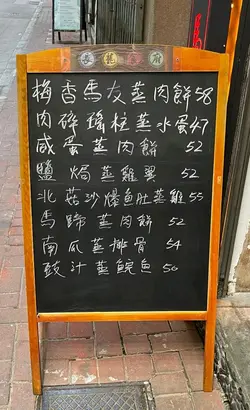 梅香馬友蒸肉餅58
肉碎瑤柱蒸水蛋47
咸蛋蒸肉餅 52
鹽焗蒸雞翼 52
北菇沙爆魚肚蒸雞55
馬蹄蒸肉餅 52
南瓜蒸排骨 54
豉汁蒸鯇魚 50